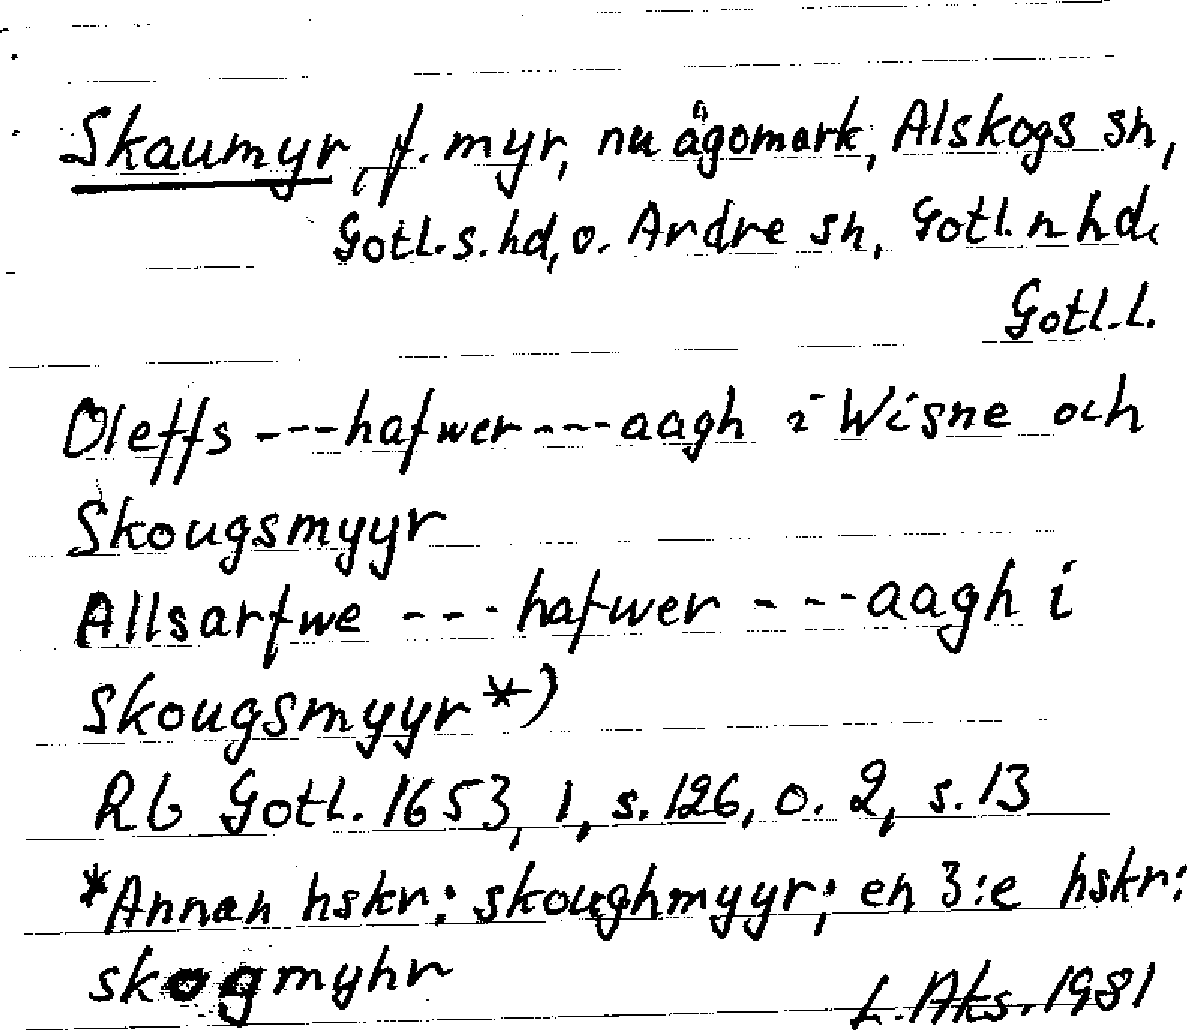 Skaumyr, f. myr, nu ägomark, Alskogs sn,
Gotl. s. hd, o. Ardre sn, Gotl. n hd.
Gotl. l.
Oleffs ---hafwer---aagh i Wisne och
Skougsmyyr
Allsarfwe ---hafwer ---aagh i
Skougsmyyr*)
Rb Gotl. 1653, 1, s. 126, o. 2, s. 13
*Annan hskr: skoughmyyr; en 3:e hskr:
skogmyhr
L. Aks. 1981